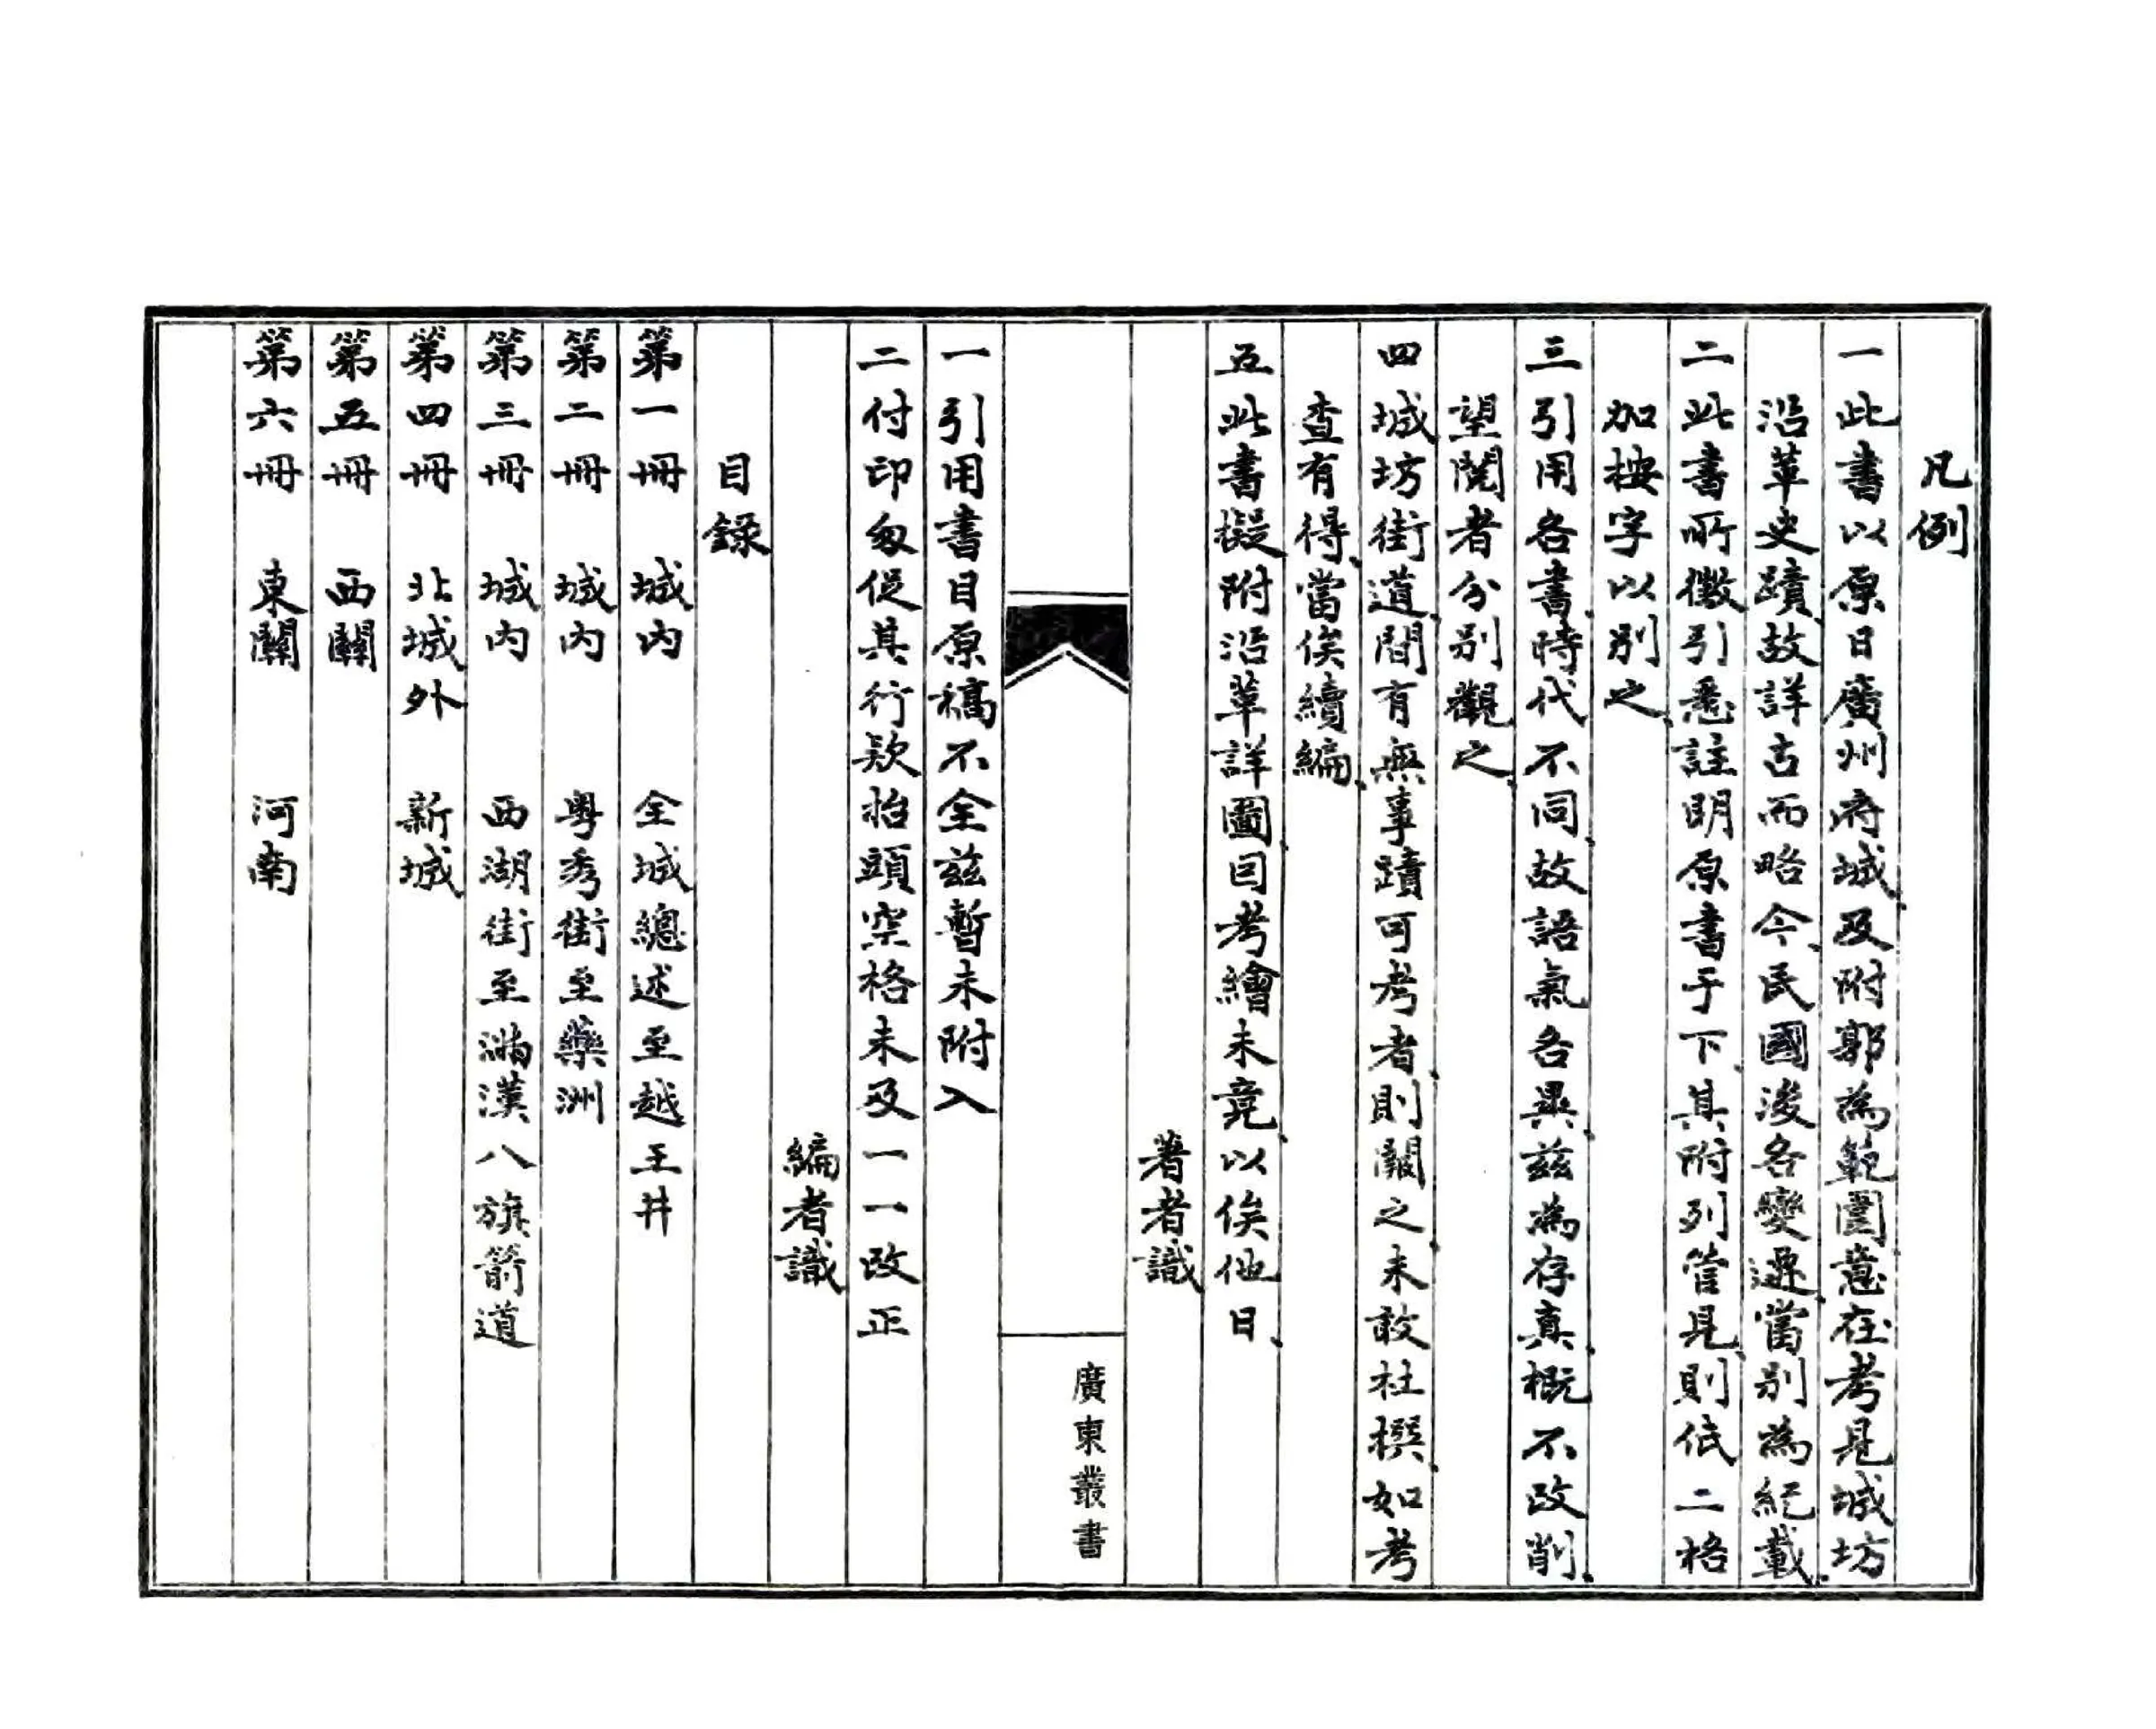 凡例
一此書以原日廣州府城、及附郭為範圍、意在考見城坊
沿革史蹟、故詳古而略今、民國後各變遷、當別為紀載、
二此書所徵引、悉註明原書于下、其附列管見、則低二格
加按字以別之、
三引用各書、時代不同、故語氣各異、兹為存真、概不改削、
望閱者分別觀之、
四城坊街道、間有無事蹟可考者、則闕之、未敢杜撰、如考
查有得、當俟續編、
五此書擬附沿革詳圖、因考繪未竟、以俟他日、
著者識
廣東叢書
一引用書目原稿不全兹暫未附入
二付印匆促其行欵抬頭空格未及一一改正
編者識
目錄
第一冊 城內 全城總述至越王井
第二冊 城內 粵秀街至藥洲
第三冊 城內 西湖街至滿漢八旗箭道
第四冊 北城外 新城
第五冊 西關
第六冊 東關 河南